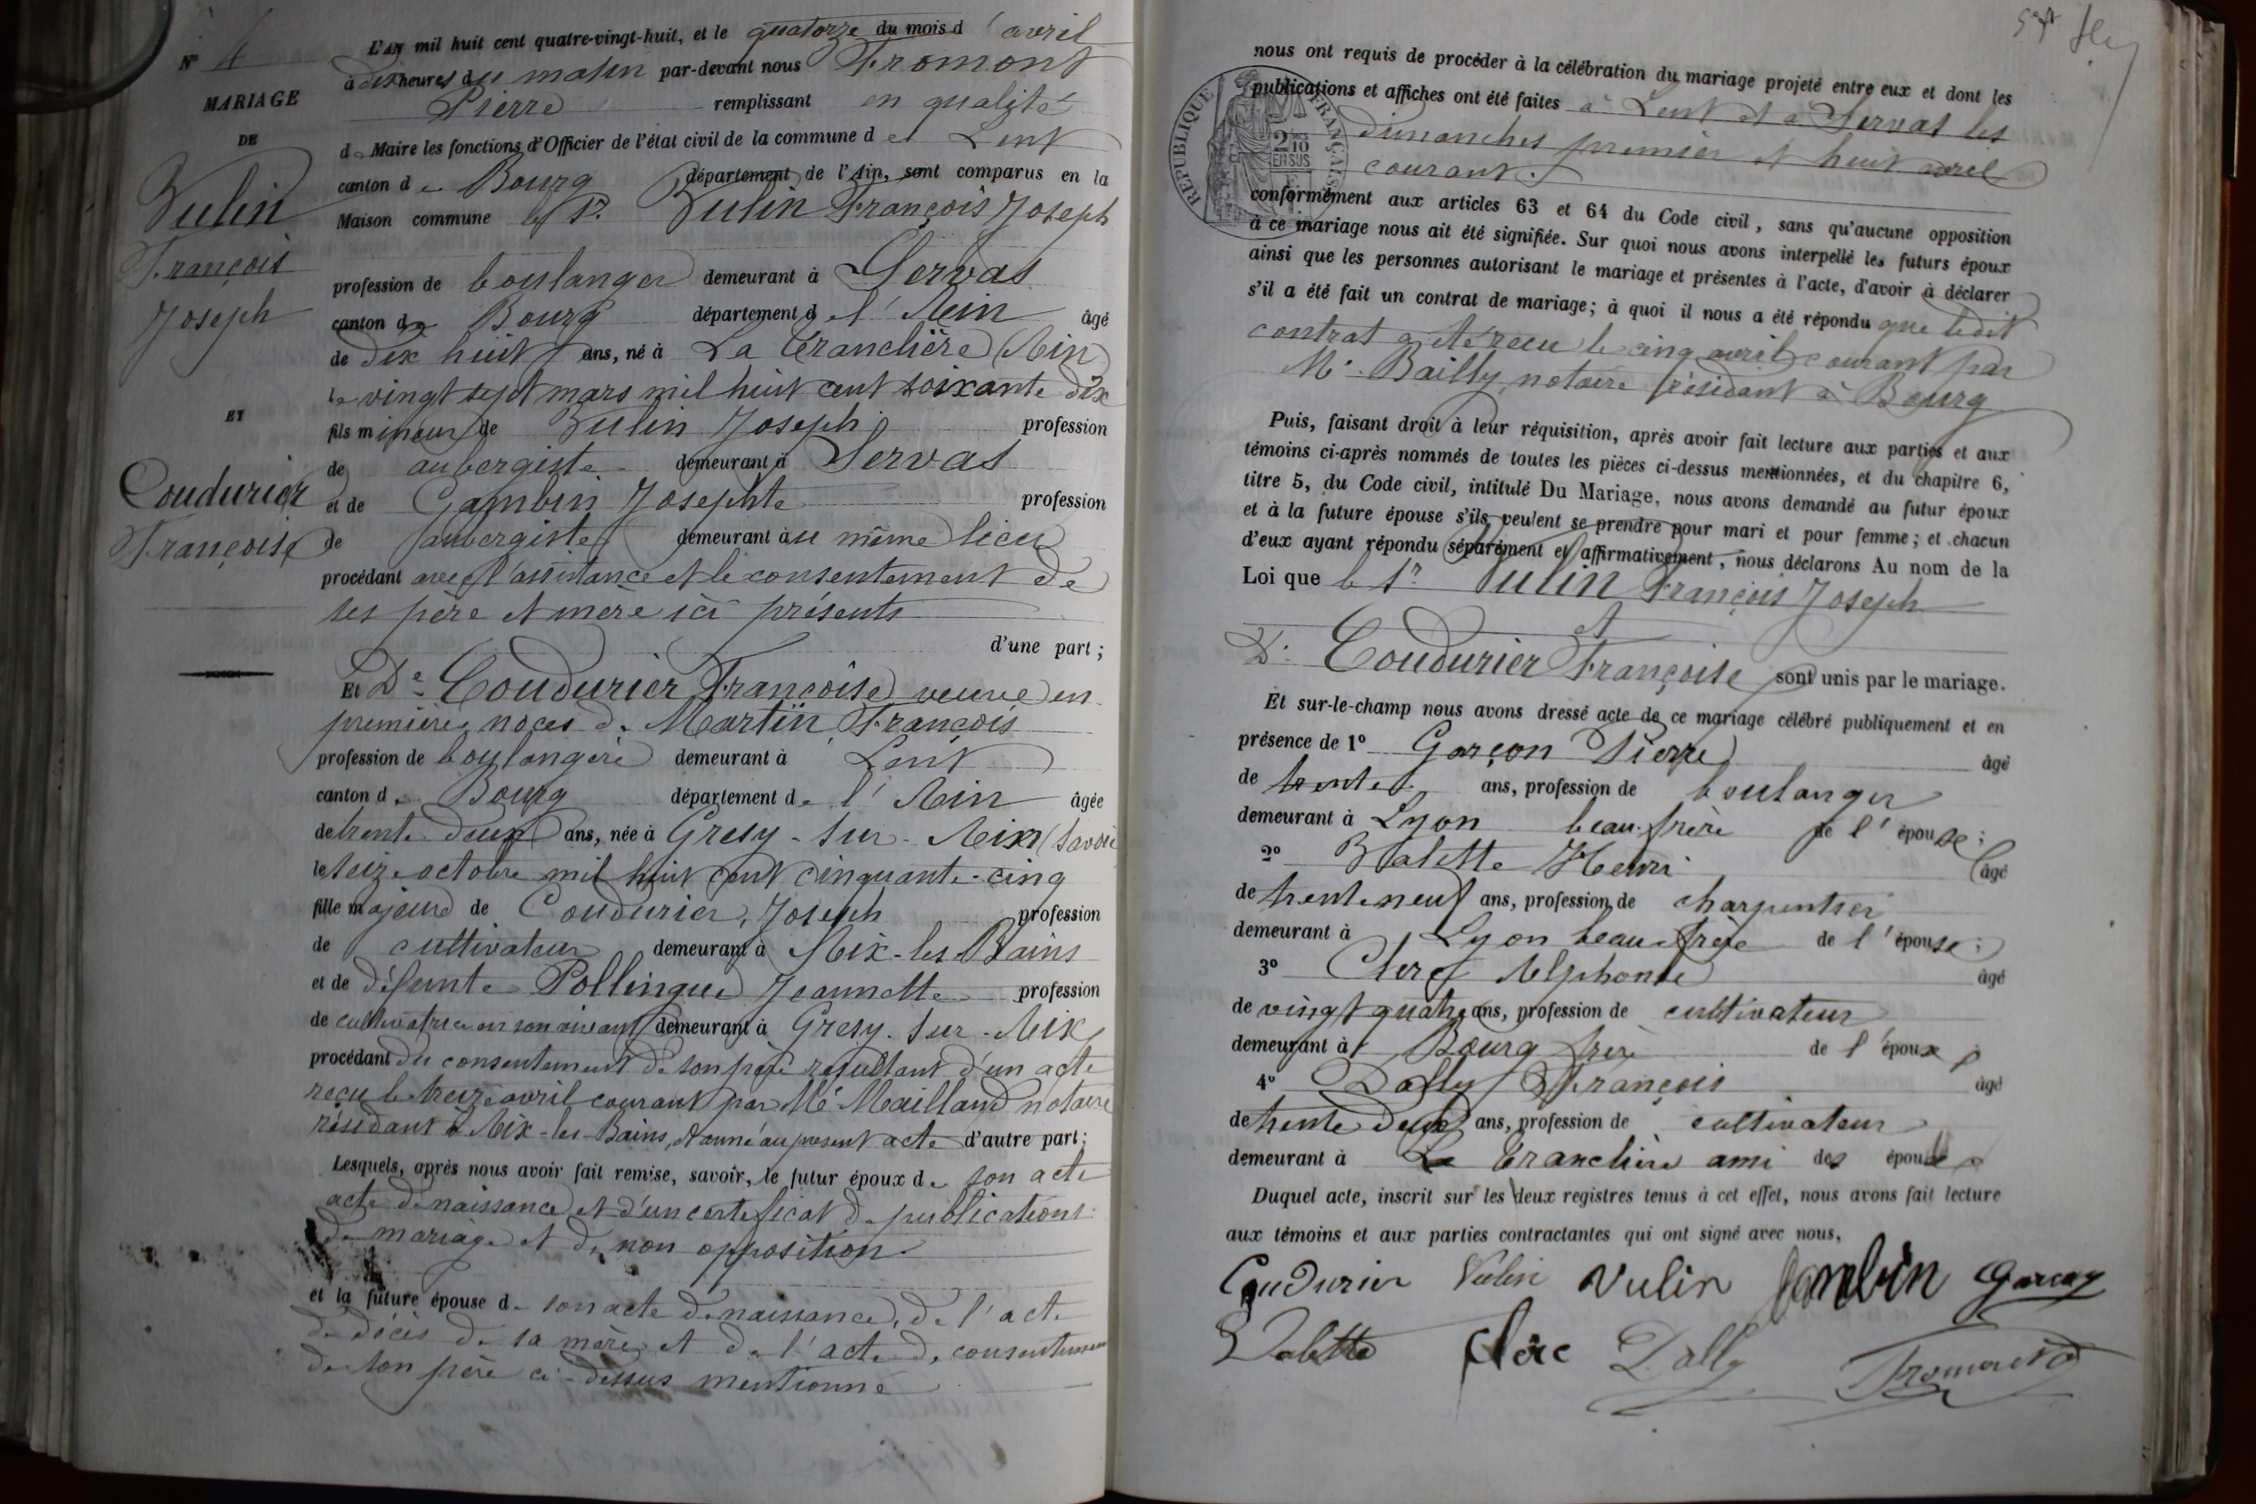 N° 4
MARIAGE
DE
Vulin
François
Joseph
ET
Coudurier
Françoise
L'AN mil huit cent quatre-vingt-huit, et le quatorze du mois d'avril
à dix heures du matin par-devant nous Fromont
Pierre remplissant en qualité
de Maire les fonctions d'Officier de l'état civil de la commune de Lent
canton de Bourg département de l'Ain, sont comparus en la
Maison commune le Sr Vulin François Joseph
profession de boulanger demeurant à Servas
canton de Bourg département de l'Ain âgé
de dix huit ans, né à La Tranclière (Ain)
le vingt sept mars mil huit cent soixante dix
fils mineur de Vulin Joseph profession
de aubergiste demeurant à Servas
et de Gambin Josephte profession
de aubergiste demeurant au même lieu
procédant avec l'assistance et le consentement de
ses père et mère ici présents
d'une part ;
Et De Coudurier Françoise veuve en
premières noces de Martin François
profession de boulangère demeurant à Lent
canton de Bourg département de l'Ain âgée
de trente deux ans, née à Gresy-sur-Aix (Savoie
le seize octobre mil huit cent cinquante-cinq
fille majeure de Coudurier, Joseph profession
de cultivateur demeurant à Aix-les-Bains
et de défunte Pollingue Jeannette profession
de cultivatrice en son vivant demeurant à Gresy-sur-Aix
procédant du consentement de son père résultant d'un acte
reçu le treize avril courant par Me Mailland notaire
résidant à Aix-les-Bains, et annexé au présent acte d'autre part ;
Lesquels, après nous avoir fait remise, savoir, le futur époux de son acte
acte de naissance et d'un certificat de publications
de mariage et de non opposition
et la future épouse de son acte de naissance, de l'acte
de décès de sa mère et de l'acte de consentement
de son père ci-dessus mentionné
nous ont requis de procéder à la célébration du mariage projeté entre eux et dont les
publications et affiches ont été faites à Lent et à Servas les
dimanches premier et huit avril
courant.
RÉPUBLIQUE FRANÇAISE
2/10 EN SUS
conformément aux articles 63 et 64 du Code civil, sans qu'aucune opposition
à ce mariage nous ait été signifiée. Sur quoi nous avons interpellé les futurs époux
ainsi que les personnes autorisant le mariage et présentes à l'acte, d'avoir à déclarer
s'il a été fait un contrat de mariage ; à quoi il nous a été répondu que ledit
contrat a été reçu le cinq avril courant par
Me Bailly, notaire résidant à Bourg
Puis, faisant droit à leur réquisition, après avoir fait lecture aux parties et aux
témoins ci-après nommés de toutes les pièces ci-dessus mentionnées, et du chapitre 6,
titre 5, du Code civil, intitulé Du Mariage, nous avons demandé au futur époux
et à la future épouse s'ils veulent se prendre pour mari et pour femme ; et chacun
d'eux ayant répondu séparément et affirmativement, nous déclarons Au nom de la
Loi que le Sr Vulin François Joseph
et
De Coudurier Françoise sont unis par le mariage.
Et sur-le-champ nous avons dressé acte de ce mariage célébré publiquement et en
présence de 1° Garçon Pierre âgé
de trente ans, profession de boulanger
demeurant à Lyon beau-frère de l'épouse ;
2° Balette Henri âgé
de trente neuf ans, profession de charpentier
demeurant à Lyon beau frère de l'épouse ;
3° Clerc Alphonse âgé
de vingt quatre ans, profession de cultivateur
demeurant à Bourg frère de l'époux ;
4° Dally François âgé
de trente deux ans, profession de cultivateur
demeurant à La Tranclière ami des époux
Duquel acte, inscrit sur les deux registres tenus à cet effet, nous avons fait lecture
aux témoins et aux parties contractantes qui ont signé avec nous,
Coudurier Vulin Vulin Gambin Garçon
Balette Clerc Dally Fromont